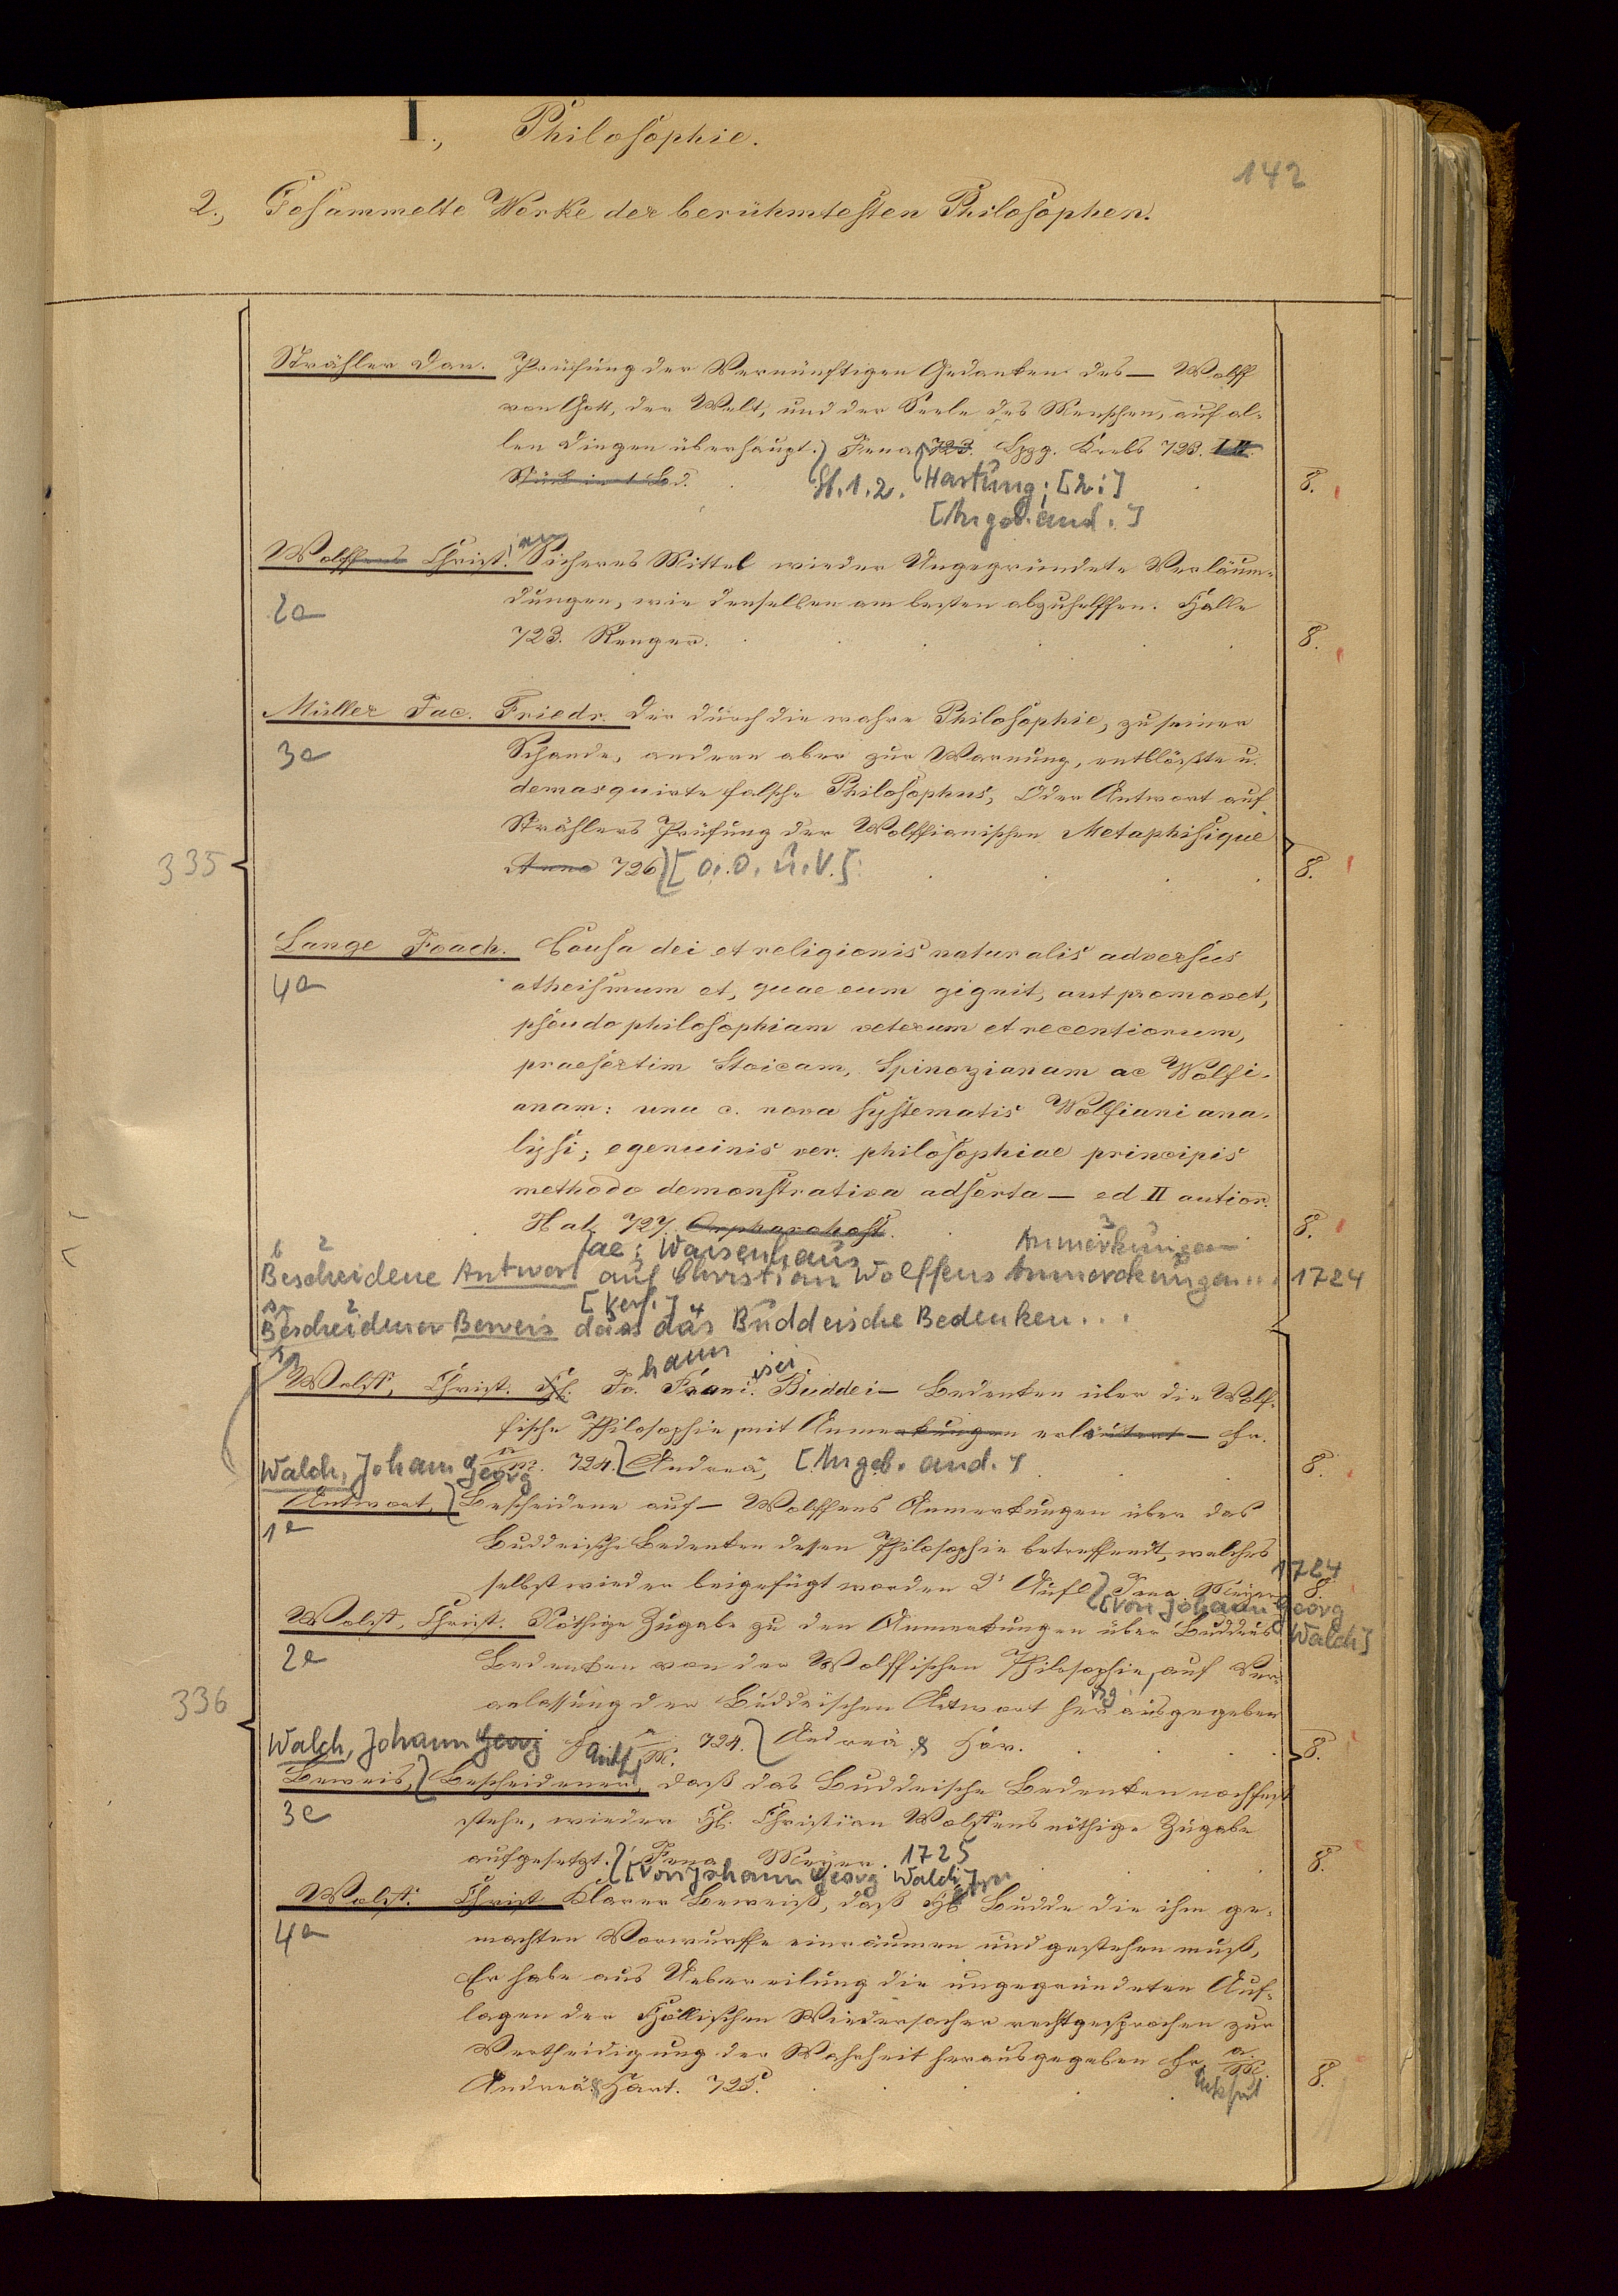 I., Philosophie.
142
2., Gesammelte Werke der berühmtesten Philosophen.
Strähler Dan. Prüfung der Vernünftigen Gedanken des — Wolff
von Gott, der Welt, und der Seele des Menschen, auf al-
len Dingen überhaupt. Jena 723. Lpzg. Krebs 723. I II.
Stück in 1 Bd. 8.
St. 1. 2. Hartung; [2:]
[Angeb. and.]
Wolffens Christ. Sicheres Mittel wieder Ungegründete Verläum-
2a dungen, wie denselben am besten abzuhelffen. Halle
723. Renger. 8.
Müller Jac. Friedr. Der durch die wahre Philosophie, zu seiner
3a Schande, andern aber zur Warnung, entblößte u.
demasquirte falsche Philosophus, Oder Antwort auf
Strählers Prüfung der Wolffianischen Metaphisique
335
Anno 726 [o. O. u. V.] 8.
Lange Joach. Causa dei et religionis naturalis adversus
4a atheismum et, quae eum gignit, aut promovet,
pseudophilosophiam veterum et recentiorum,
praesertim Stoicam, Spinozianam ac Wolfi-
anam: una c. nova systematis Wolfiani ana-
lysi; e genuinis ver. philosophiae principis
methodo demonstrativa adserta — ed II autior.
Hal. 727. Orphanotrof. 8.
ae: Waisenhaus Anmerkungen
Bescheidene Antwort auf Christian Wolffens Anmerckungen... 1724
[Verf.]
Bescheidener Beweis dass das Buddeische Bedenken...
Wolff, Christ. Hl. Jo. Franc. Buddei — Bedenken über die Wolf-
hann isci
fische Philosophie, mit Anmerkungen erläutert — Fr.
Walch, Johann Georg a/M. 724. Andreä, [Angeb. and.] 8.
Antwort, Bescheidene auf — Wolffens Anmerkungen über das
1a Buddeische Bedenken dessen Philosophie betreffendt, welches
1724
selbst wieder beigefügt worden 2' Aufl. Jena Meyer 8.
[von Johann Georg
Walch]
Wolff, Christ. Nöthige Zugabe zu den Anmerkungen über Buddeus
2a Bedenken von der Wolffischen Philosophie, auf Ver-
anlassung der Buddeischen Antwort herausgegeben
336
Walch, Johann Georg a/M. 724. Andreä & Hor. 8.
Beweis, Bescheidener, daß das Buddeische Bedenken noch fest
3a stehe, wieder Hl. Christian Wolffens nöthige Zugabe
aufgesetzt. Jena Meyer. 1725 8.
[von Johann Georg Walch]
Wolff. Christ Klarer Beweiß, daß Hl Budde die ihm ge-
4a machten Vorwurffe einräumen und gestehen muß,
Er habe aus Uebereilung die ungegründeten Auf-
lagen der Hällischen Wiedersacher rechtgesprochen zur
Vertheidigung der Wahrheit herausgegeben Fr. a/M.
Andreä & Hort. 725. 8.